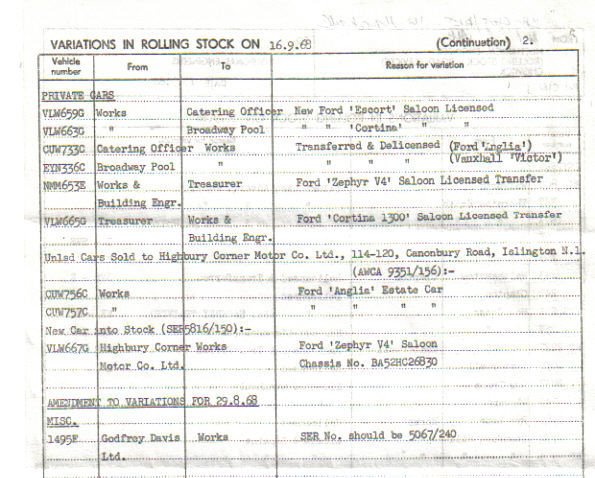 VARIATIONS IN ROLLING STOCK ON 16.9.68 (Continuation) 2.
Vehicle number From To Reason for variation
PRIVATE CARS
VLW659G Works Catering Officer New Ford 'Escort' Saloon Licensed
VLW663G " Broadway Pool " " 'Cortina' " "
CUW733C Catering Officer Works Transferred & Delicensed (Ford 'Anglia')
EYN336C Broadway Pool " " " " (Vauxhall 'Victor')
NMM653E Works & Treasurer Ford 'Zephyr V4' Saloon Licensed Transfer
Building Engr.
VLW665G Treasurer Works & Ford 'Cortina 1300' Saloon Licensed Transfer
Building Engr.
Unlsd Cars Sold to Highbury Corner Motor Co. Ltd., 114-120, Canonbury Road, Islington N.1.
(AWCA 9351/156):-
CUW756C Works Ford 'Anglia' Estate Car
CUW757C " " " " "
New Car into Stock (SER5816/150):-
VLW667G Highbury Corner Works Ford 'Zephyr V4' Saloon
Motor Co. Ltd. Chassis No. BA52HC26830
AMENDMENT TO VARIATIONS FOR 29.8.68
MISC.
1495F Godfrey Davis Works SER No. should be 5067/240
Ltd.